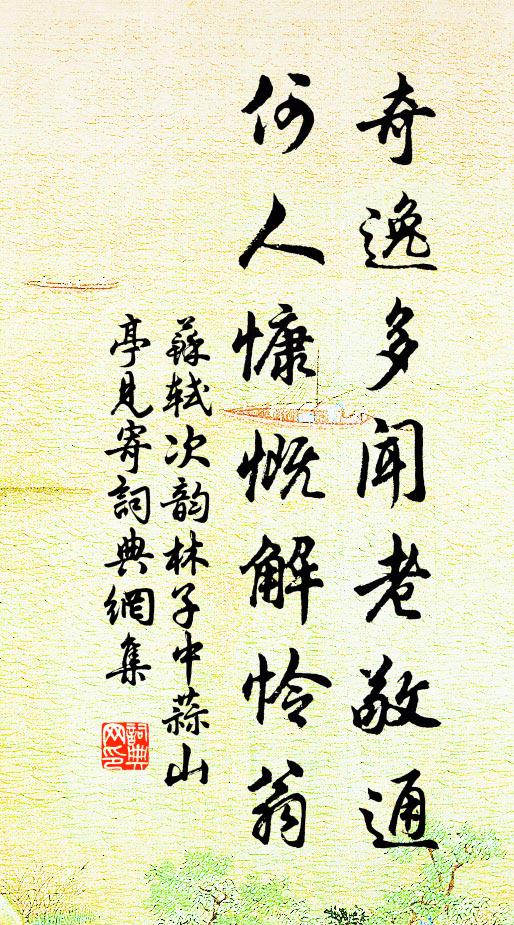 奇逸多聞老敬通
何人慷慨解怜翁
蘇軾次韵林子中蒜山
亭見寄詞典網集
詞典
网印